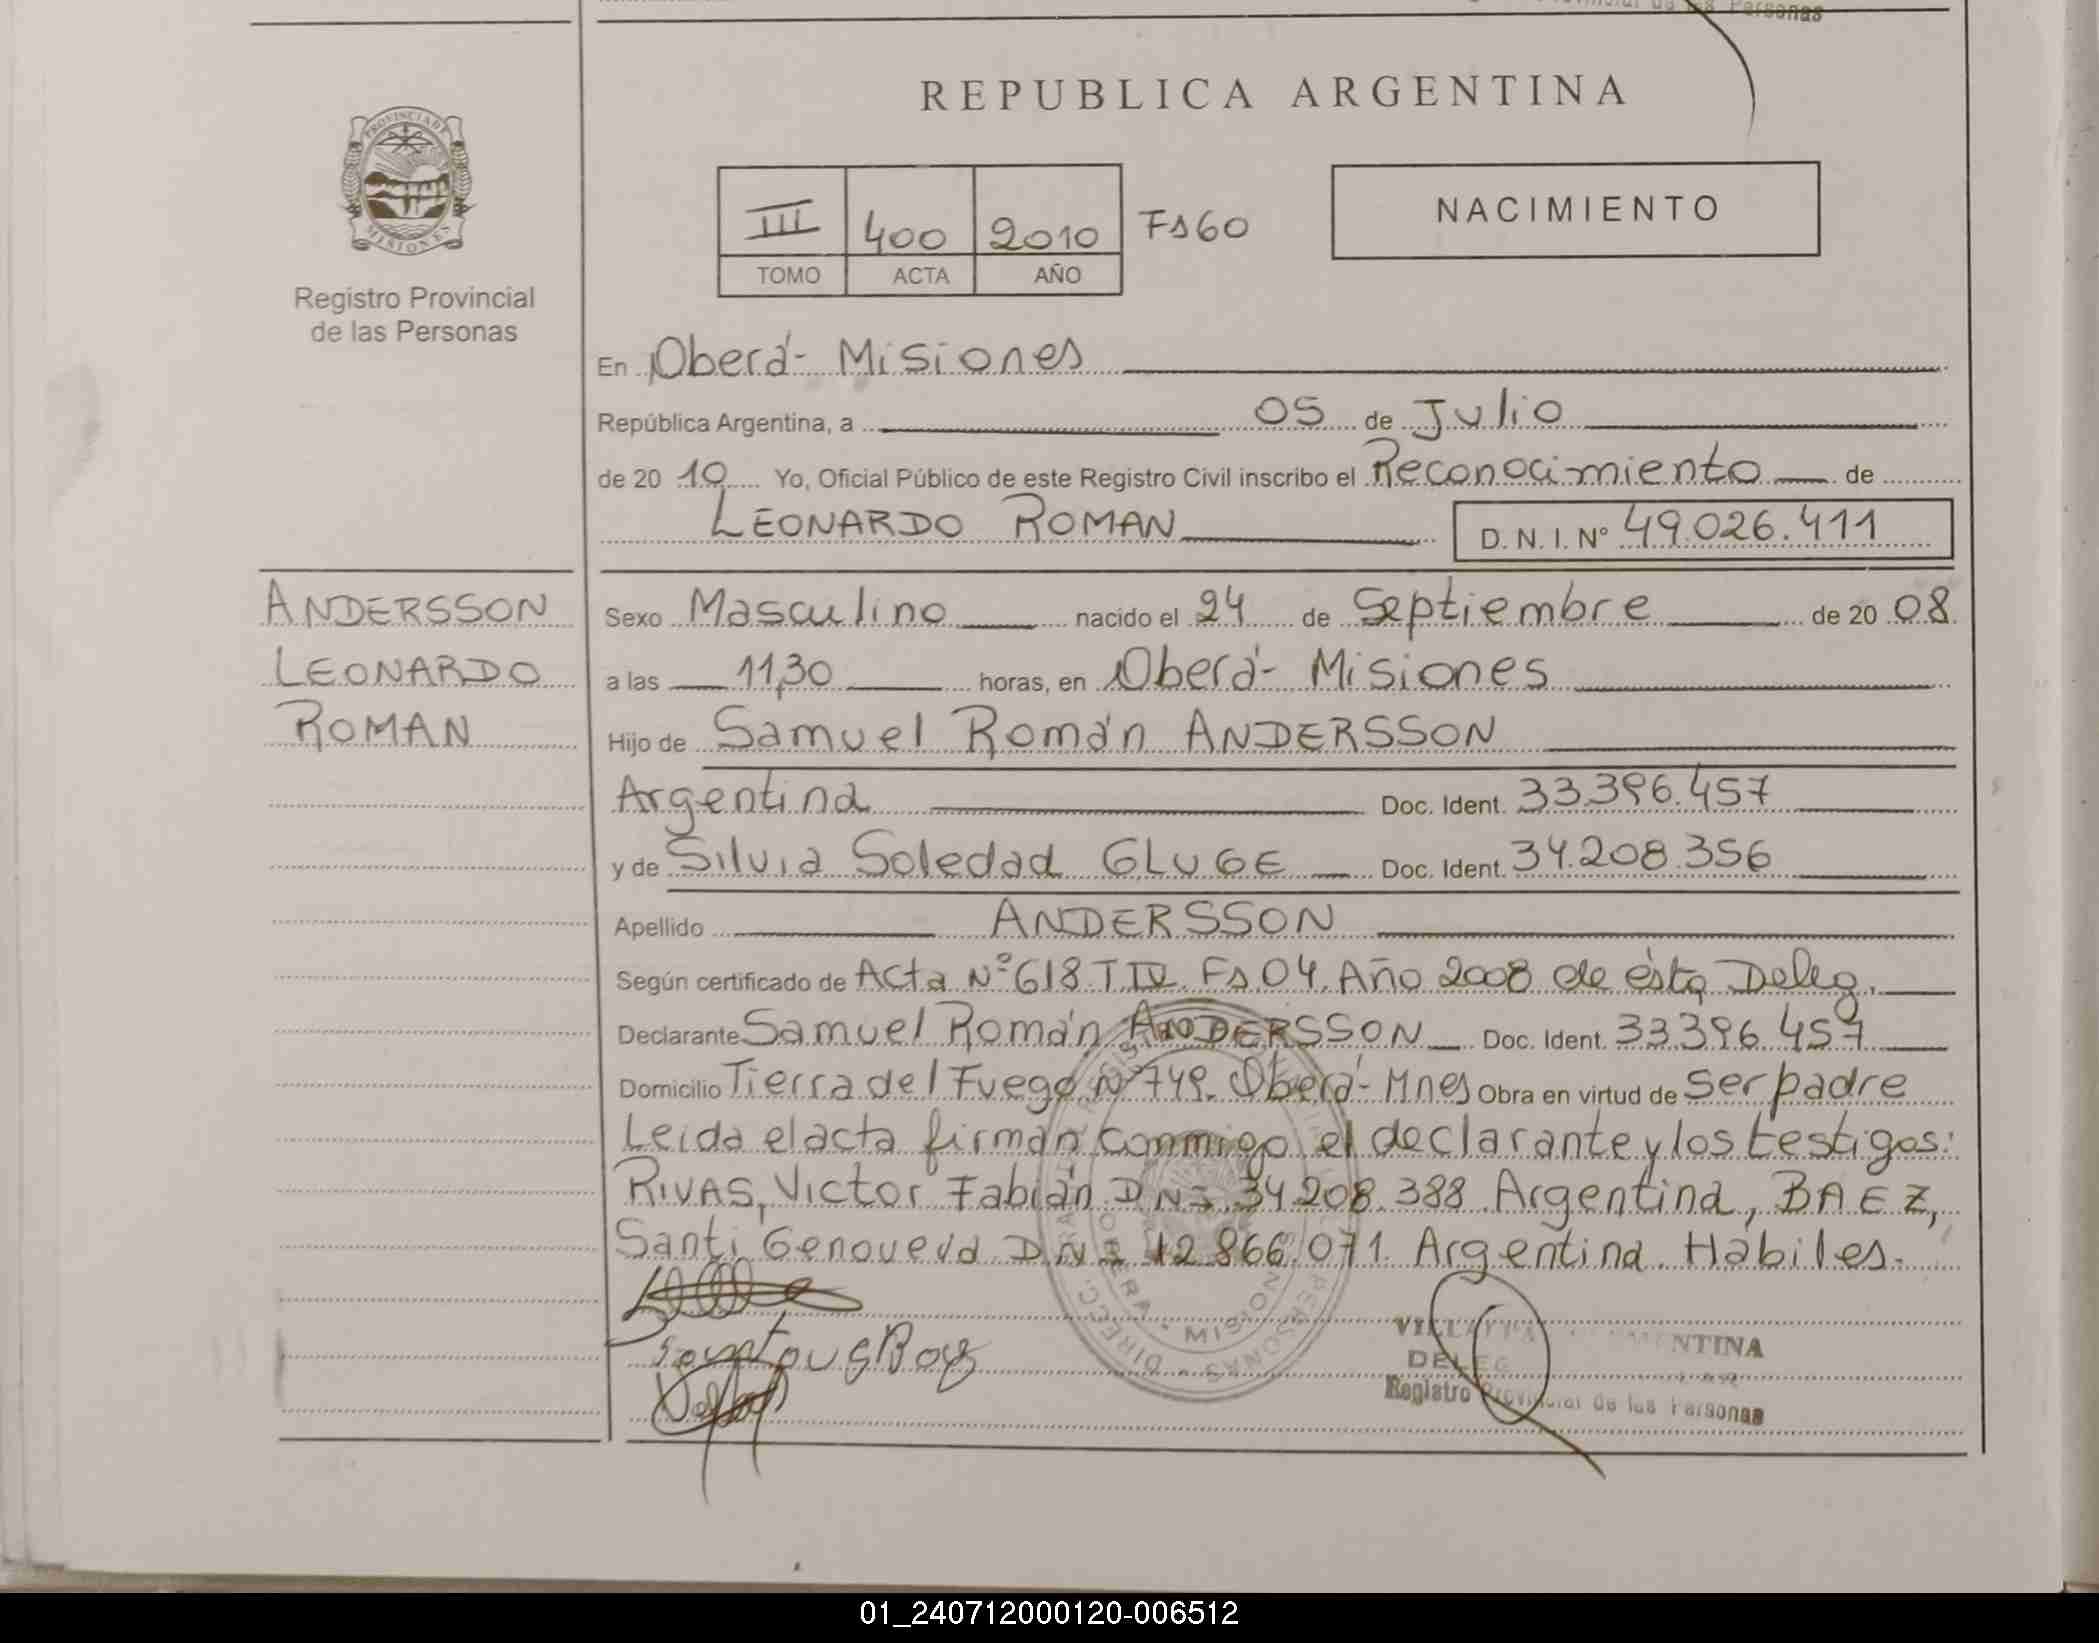 de las Personas
PROVINCIA DE
MISIONES
Registro Provincial
de las Personas
ANDERSSON
LEONARDO
ROMAN
REPUBLICA ARGENTINA
III 400 2010 Fs60
TOMO ACTA AÑO
NACIMIENTO
En Oberá- Misiones
República Argentina, a 05 de Julio
de 20 10 Yo, Oficial Público de este Registro Civil inscribo el Reconocimiento de
LEONARDO ROMAN D. N. I. Nº 49.026.411
Sexo Masculino nacido el 24 de Septiembre de 20 08.
a las 11,30 horas, en Oberá- Misiones
Hijo de Samuel Román ANDERSSON
Argentina Doc. Ident. 33.396.457
y de Silvia Soledad GLUGE Doc. Ident. 34.208.356
Apellido ANDERSSON
Según certificado de Acta Nº 618 T IV. Fs 04. Año 2008 de ésta Deleg.
Declarante Samuel Román ANDERSSON Doc. Ident. 33.396.457
Domicilio Tierra del Fuego Nº 749. Oberá- Mnes Obra en virtud de Ser padre
Leida el acta firman conmigo el declarante y los testigos:
RIVAS, Victor Fabián DNI 34.208.388 Argentina, BAEZ,
Santi Genoveva DNI 12.866.071. Argentina. Hábiles.
OBERA - MISIONES
DIRECC.
PERSONAS
NTINA
DELEG
Registro Provincial de las Personas
01_240712000120-006512